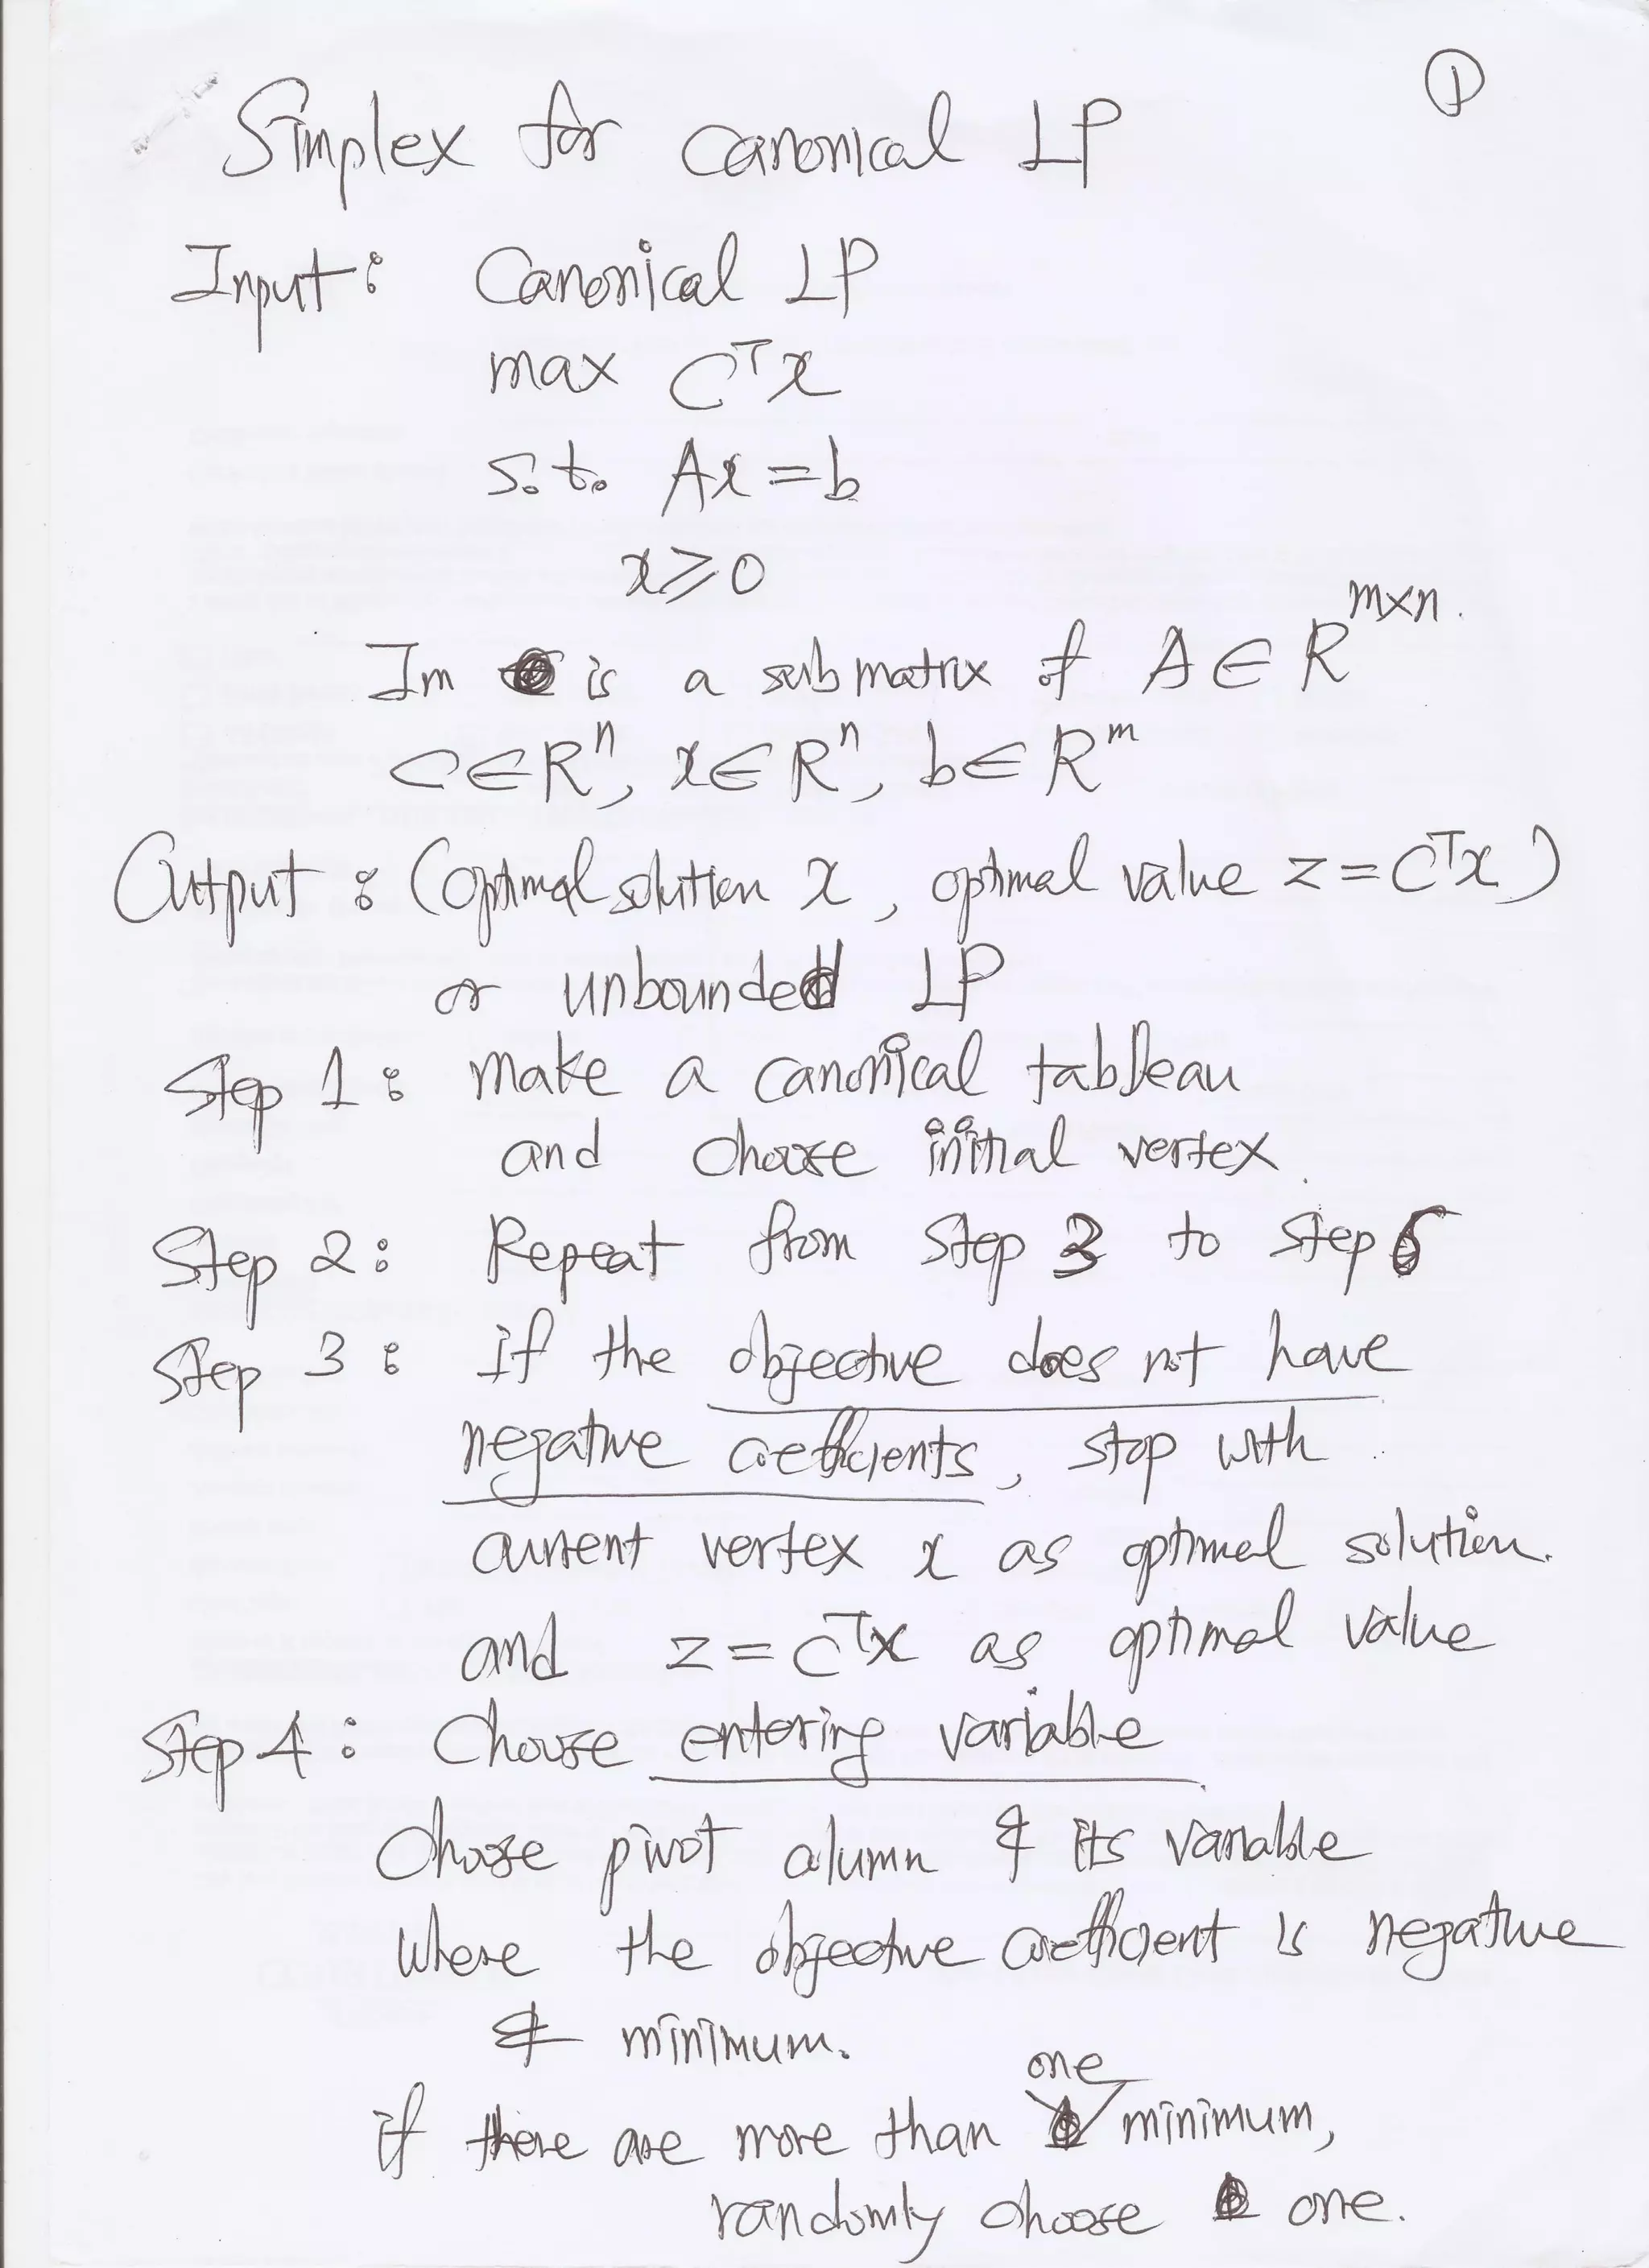 ①
Simplex for canonical LP
Input: Canonical LP
max Cᵀx
s.t. Ax = b
x ⩾ 0
Im is a submatrix of A ∈ R^{m×n}.
C ∈ Rⁿ, x ∈ Rⁿ, b ∈ Rᵐ
Output: (optimal solution x, optimal value z = Cᵀx)
or unbounded LP
Step 1: make a canonical tableau
and choose initial vertex.
Step 2: Repeat from step 3 to step
Step 3: if the objective does not have
negative coefficients, stop with
current vertex x as optimal solution.
and z = Cᵀx as optimal value
Step 4: Choose entering variable
Choose pivot column & its variable
where the objective coefficient is negative
& minimum.
if there are more than one minimum,
randomly choose one.